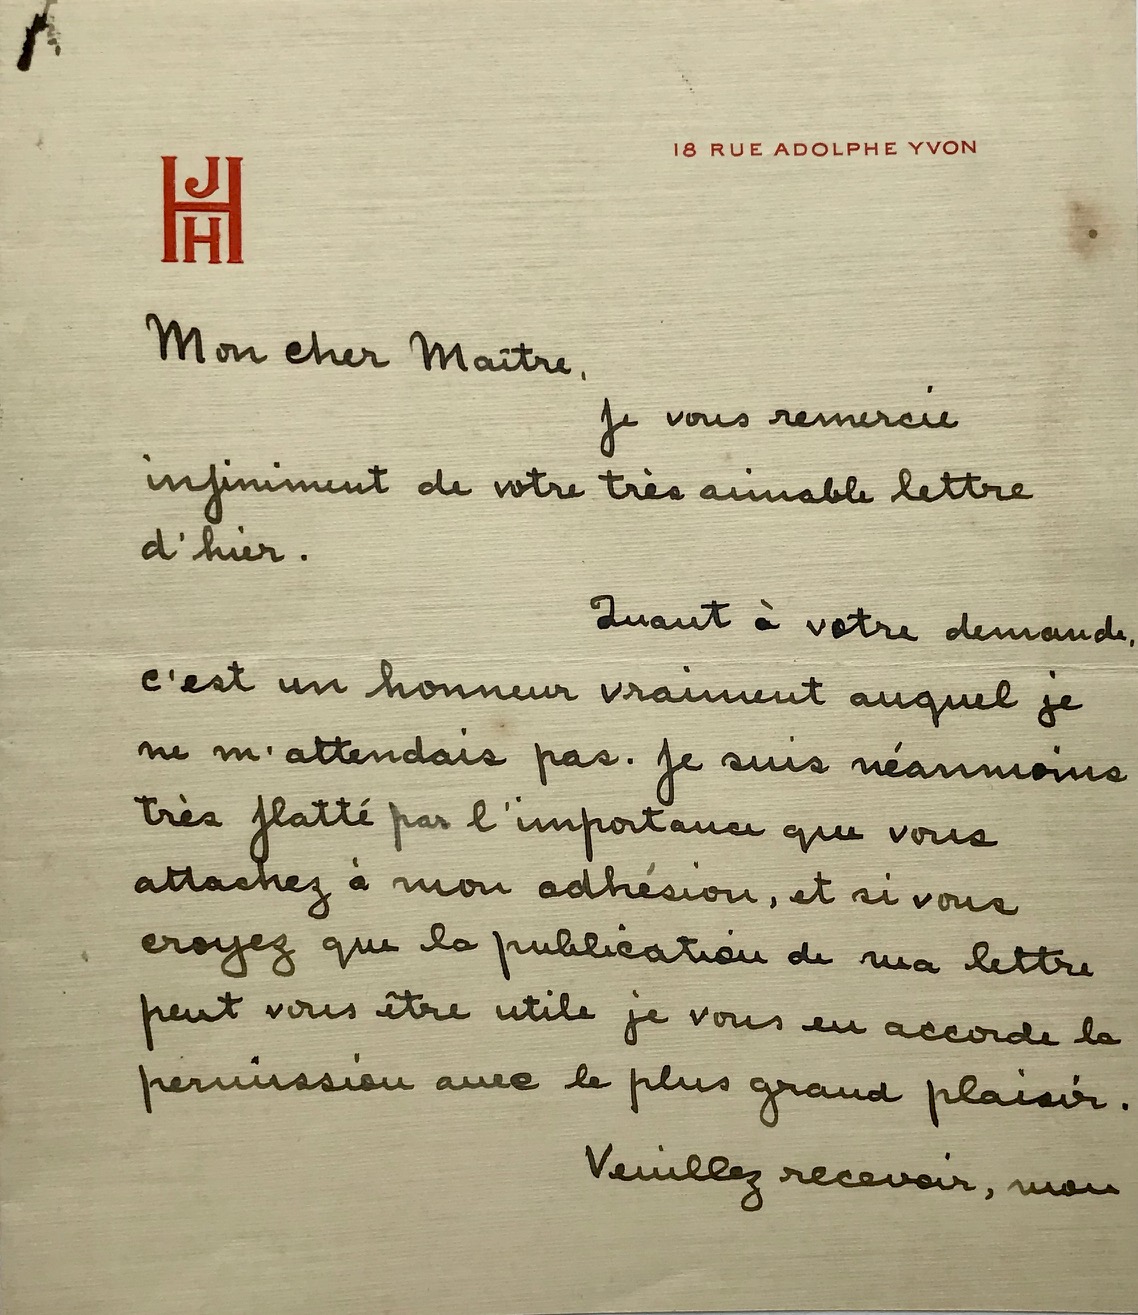 18 RUE ADOLPHE YVON
HJH
Mon cher Maître,
Je vous remercie
infiniment de votre très aimable lettre
d'hier.
Quant à votre demande,
c'est un honneur vraiment auquel je
ne m'attendais pas. Je suis néanmoins
très flatté par l'importance que vous
attachez à mon adhésion, et si vous
croyez que la publication de ma lettre
peut vous être utile je vous en accorde la
permission avec le plus grand plaisir.
Veuillez recevoir, mon